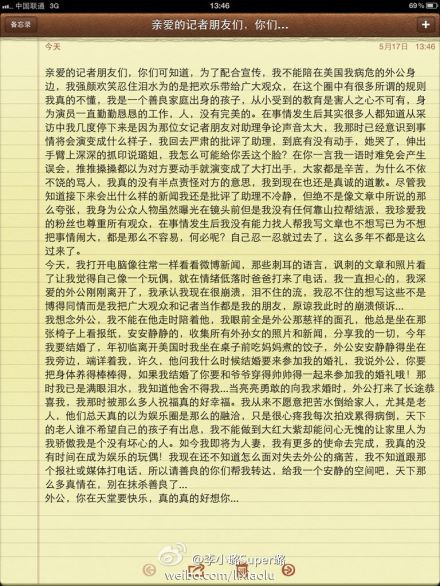 中国联通 3G
13:46
69%
备忘录
亲爱的记者朋友们，你们...
今天
5月17日 13:46
亲爱的记者朋友们，你们可知道，为了配合宣传，我不能陪在美国我病危的外公身
边，我强颜欢笑忍住泪水为的是把欢乐带给广大观众，在这个圈中有很多所谓的规则
我真的不懂，我是一个善良家庭出身的孩子，从小受到的教育是害人之心不可有，身
为演员一直勤勤恳恳的工作，人，没有完美的。在事情发生后其实很多人都知道从采
访中我几度停下来是因为那位女记者朋友对助理争论声音太大，我那时已经意识到事
情将会演变成什么样子，我回去严肃的批评了助理，到底有没有动手，她哭了，伸出
手臂上深深的抓印说璐姐，我怎么可能给你丢这个脸？在你一言我一语时难免会产生
误会，推推操操都以为对方要动手就演变成了大打出手，大家都是辛苦，为什么不依
不饶的骂人，我真的没有半点责怪对方的意思，我到现在也还是真诚的道歉。尽管我
知道接下来会出什么样的新闻我还是批评了助理不冷静，但绝不是像文章中所说的那
么夸张，我身为公众人物虽然曝光在镜头前但是我没有任何靠山拉帮结派，我珍爱我
的粉丝也尊重所有观众，在事情发生后我没有能力找人帮我写文章也不想写已为不想
把事情闹大，都是那么不容易，何必呢？自己忍一忍就过去了，这么多年不都是这么
过来了。
今天，我打开电脑像往常一样看看微博新闻，那些刺耳的语言，讽刺的文章和照片看
了让我觉得自己像一个玩偶，就在情绪低落时爸爸打来了电话，我一直担心的，我深
爱的外公刚刚离开了，我承认我现在很崩溃，泪不住的流，我忍不住的想写这些不是
博得同情而是我把广大观众和记者当作都是我的朋友，原谅我此时的崩溃倾诉...
我想念外公，我不能在他走时陪着他，我眼前全是外公那慈祥的面孔，他总是坐在那
张椅子上看报纸，安安静静的，收集所有外孙女的照片和新闻，分享我的一切，今年
我要结婚了，年初临离开美国时我坐在桌子前吃妈妈煮的饺子，外公安安静静得坐在
我旁边，端详着我，许久，他问我什么时候结婚要来参加我的婚礼，我说外公，你要
把身体养得棒棒得，如果我结婚了你要和爷爷穿得帅帅得一起来参加我的婚礼哦！那
时我已是满眼泪水，我知道他舍不得我...当亮亮勇敢的向我求婚时，外公打来了长途恭
喜我，我那时被那么多人祝福真的好幸福。我从来不愿意把苦水倒给家人，尤其是老
人，他们总天真的以为娱乐圈是那么的融洽，只是很心疼我每次拍戏累得病倒，天下
的老人谁不希望自己的孩子有出息，我不能做到大红大紫却能问心无愧的让家里人为
我骄傲我是个没有坏心的人。如今我即将为人妻，我有更多的使命去完成，我真的没
有时间在成为娱乐的玩偶！我现在还不知道怎么面对失去外公的痛苦，我不知道跟那
个报社或媒体打电话，所以请善良的你们帮我转达，给我一个安静的空间吧，天下那
么多真情在，别在抹杀善良了...
外公，你在天堂要快乐，真的真的好想你...
@李小璐Super璐
weibo.com/lixiaolu